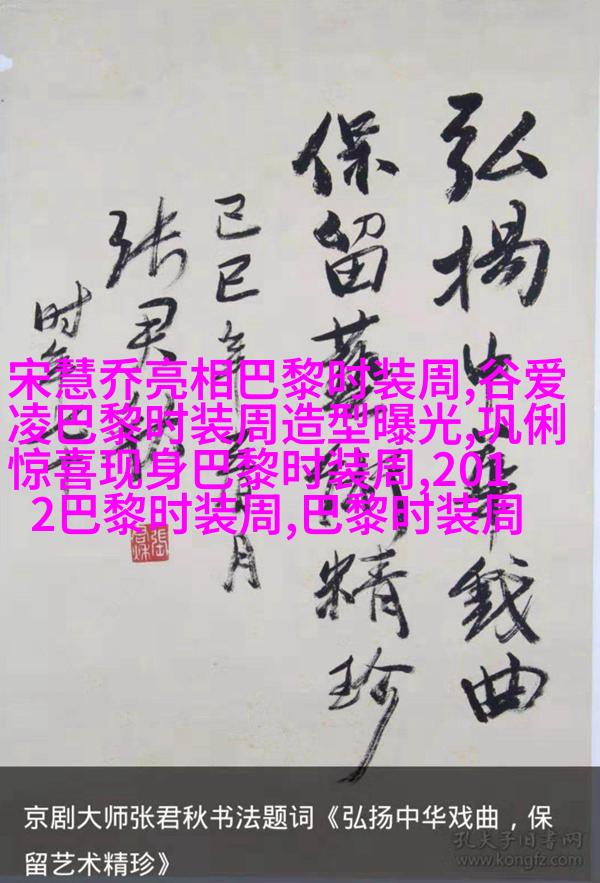 弘揚中華戏曲
保留藝術精珍
己巳年 月
张君秋
时年
宋慧乔亮相巴黎时装周,谷爱
凌巴黎时装周造型曝光,巩俐
惊喜现身巴黎时装周,201
2巴黎时装周,巴黎时装周
京剧大师张君秋书法题词《弘扬中华戏曲，保
留艺术精珍》
孔夫子旧书网
www.kongfz.com